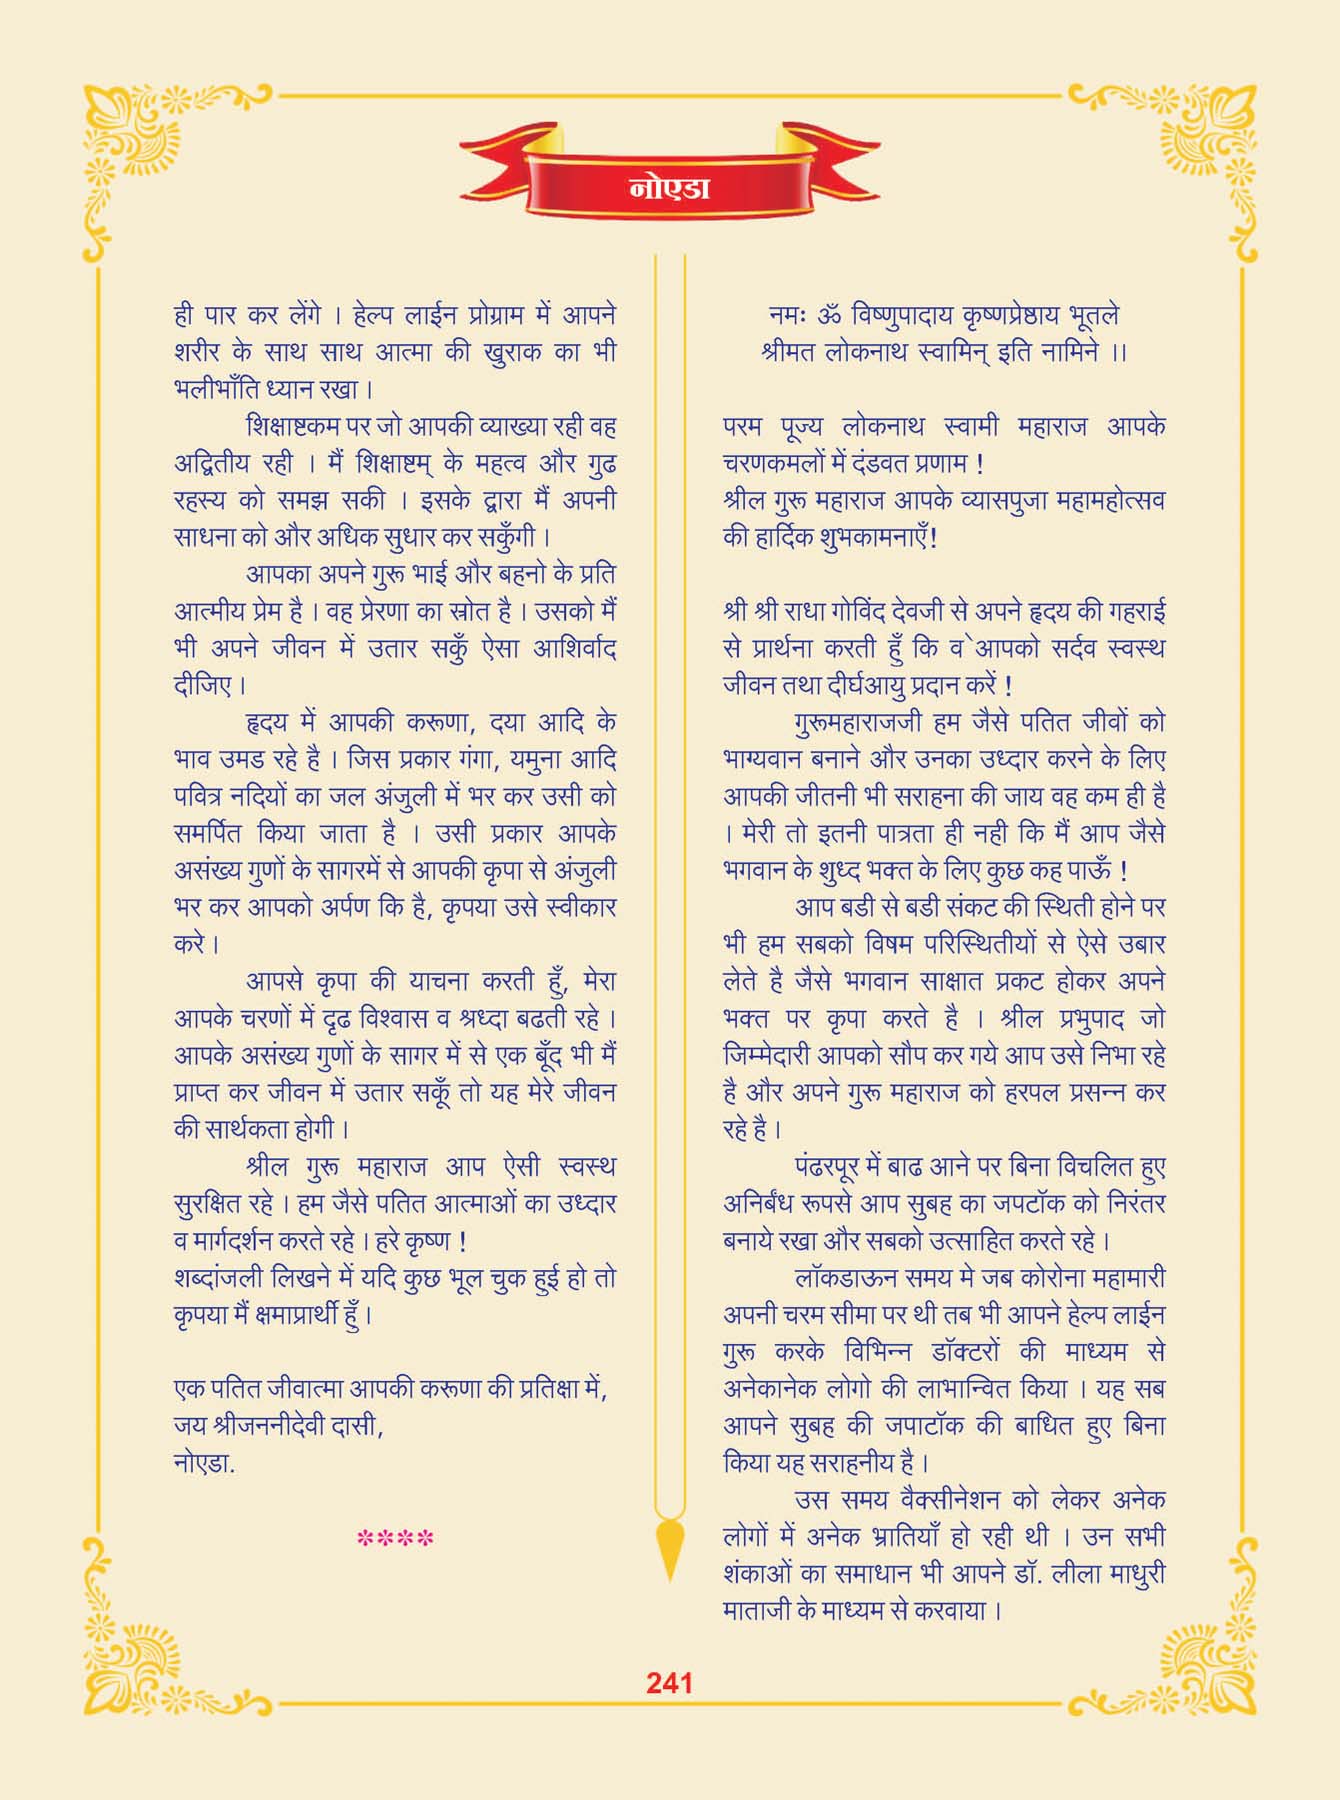 नोएडा
ही पार कर लेंगे । हेल्प लाईन प्रोग्राम में आपने
शरीर के साथ साथ आत्मा की खुराक का भी
भलीभाँति ध्यान रखा ।
शिक्षाष्टकम पर जो आपकी व्याख्या रही वह
अद्वितीय रही । मैं शिक्षाष्टम् के महत्व और गुढ
रहस्य को समझ सकी । इसके द्वारा मैं अपनी
साधना को और अधिक सुधार कर सकुँगी ।
आपका अपने गुरू भाई और बहनो के प्रति
आत्मीय प्रेम है । वह प्रेरणा का स्रोत है । उसको मैं
भी अपने जीवन में उतार सकुँ ऐसा आशिर्वाद
दीजिए ।
हृदय में आपकी करूणा, दया आदि के
भाव उमड रहे है । जिस प्रकार गंगा, यमुना आदि
पवित्र नदियों का जल अंजुली में भर कर उसी को
समर्पित किया जाता है । उसी प्रकार आपके
असंख्य गुणों के सागरमें से आपकी कृपा से अंजुली
भर कर आपको अर्पण कि है, कृपया उसे स्वीकार
करे ।
आपसे कृपा की याचना करती हुँ, मेरा
आपके चरणों में दृढ विश्वास व श्रध्दा बढती रहे ।
आपके असंख्य गुणों के सागर में से एक बूँद भी मैं
प्राप्त कर जीवन में उतार सकूँ तो यह मेरे जीवन
की सार्थकता होगी ।
श्रील गुरू महाराज आप ऐसी स्वस्थ
सुरक्षित रहे । हम जैसे पतित आत्माओं का उध्दार
व मार्गदर्शन करते रहे । हरे कृष्ण !
शब्दांजली लिखने में यदि कुछ भूल चुक हुई हो तो
कृपया मैं क्षमाप्रार्थी हुँ ।
एक पतित जीवात्मा आपकी करूणा की प्रतिक्षा में,
जय श्रीजननीदेवी दासी,
नोएडा.
****
नमः ॐ विष्णुपादाय कृष्णप्रेष्ठाय भूतले
श्रीमत लोकनाथ स्वामिन् इति नामिने ।।
परम पूज्य लोकनाथ स्वामी महाराज आपके
चरणकमलों में दंडवत प्रणाम !
श्रील गुरू महाराज आपके व्यासपुजा महामहोत्सव
की हार्दिक शुभकामनाएँ!
श्री श्री राधा गोविंद देवजी से अपने हृदय की गहराई
से प्रार्थना करती हूँ कि व`आपको सर्दव स्वस्थ
जीवन तथा दीर्घआयु प्रदान करें !
गुरूमहाराजजी हम जैसे पतित जीवों को
भाग्यवान बनाने और उनका उध्दार करने के लिए
आपकी जीतनी भी सराहना की जाय वह कम ही है
। मेरी तो इतनी पात्रता ही नही कि मैं आप जैसे
भगवान के शुध्द भक्त के लिए कुछ कह पाऊँ !
आप बडी से बडी संकट की स्थिती होने पर
भी हम सबको विषम परिस्थितीयों से ऐसे उबार
लेते है जैसे भगवान साक्षात प्रकट होकर अपने
भक्त पर कृपा करते है । श्रील प्रभुपाद जो
जिम्मेदारी आपको सौप कर गये आप उसे निभा रहे
है और अपने गुरू महाराज को हरपल प्रसन्न कर
रहे है ।
पंढरपूर में बाढ आने पर बिना विचलित हुए
अनिर्बंध रूपसे आप सुबह का जपटॉक को निरंतर
बनाये रखा और सबको उत्साहित करते रहे ।
लॉकडाऊन समय मे जब कोरोना महामारी
अपनी चरम सीमा पर थी तब भी आपने हेल्प लाईन
गुरू करके विभिन्न डॉक्टरों की माध्यम से
अनेकानेक लोगो की लाभान्वित किया । यह सब
आपने सुबह की जपाटॉक की बाधित हुए बिना
किया यह सराहनीय है ।
उस समय वैक्सीनेशन को लेकर अनेक
लोगों में अनेक भ्रातियाँ हो रही थी । उन सभी
शंकाओं का समाधान भी आपने डॉ. लीला माधुरी
माताजी के माध्यम से करवाया ।
241